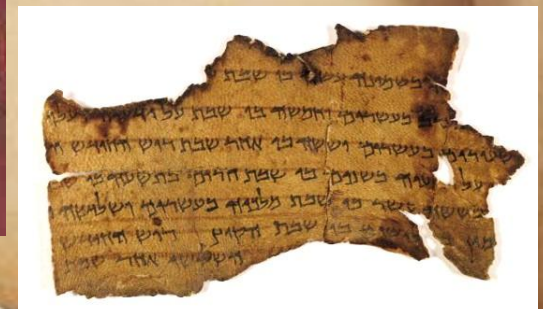 בשמונה עשר בו שבת
בעשרים וחמשה בו שבת על ידעיה
שעורים בעשרים וששה בו אחר שבת רוש החודש
על בשנים בו שבת חרים בתשעה בו
בששה עשר בו שבת מלכיה בעשרים ושלושה
בו שבת הקוץ רוש החודש
השלישי אחר שבת